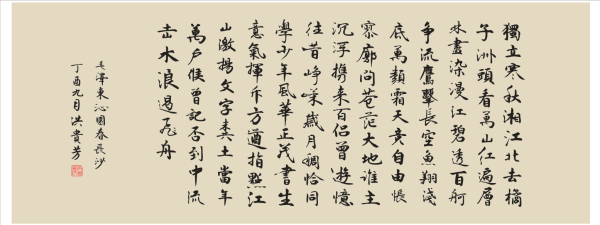 獨立寒秋湘江北去橘
子洲頭看萬山红遍層
林盡染漫江碧透百舸
争流鷹擊長空魚翔淺
底萬類霜天竞自由悵
寥廓问苍茫大地谁主
沉浮携来百侣曾遊憶
往昔峥嵘歲月稠恰同
學少年風華正茂書生
意氣揮斥方遒指點江
山激揚文字糞土當年
萬户侯曾記否到中流
击水浪遏飛舟
毛澤東沁園春長沙
丁酉九月洪貴芳